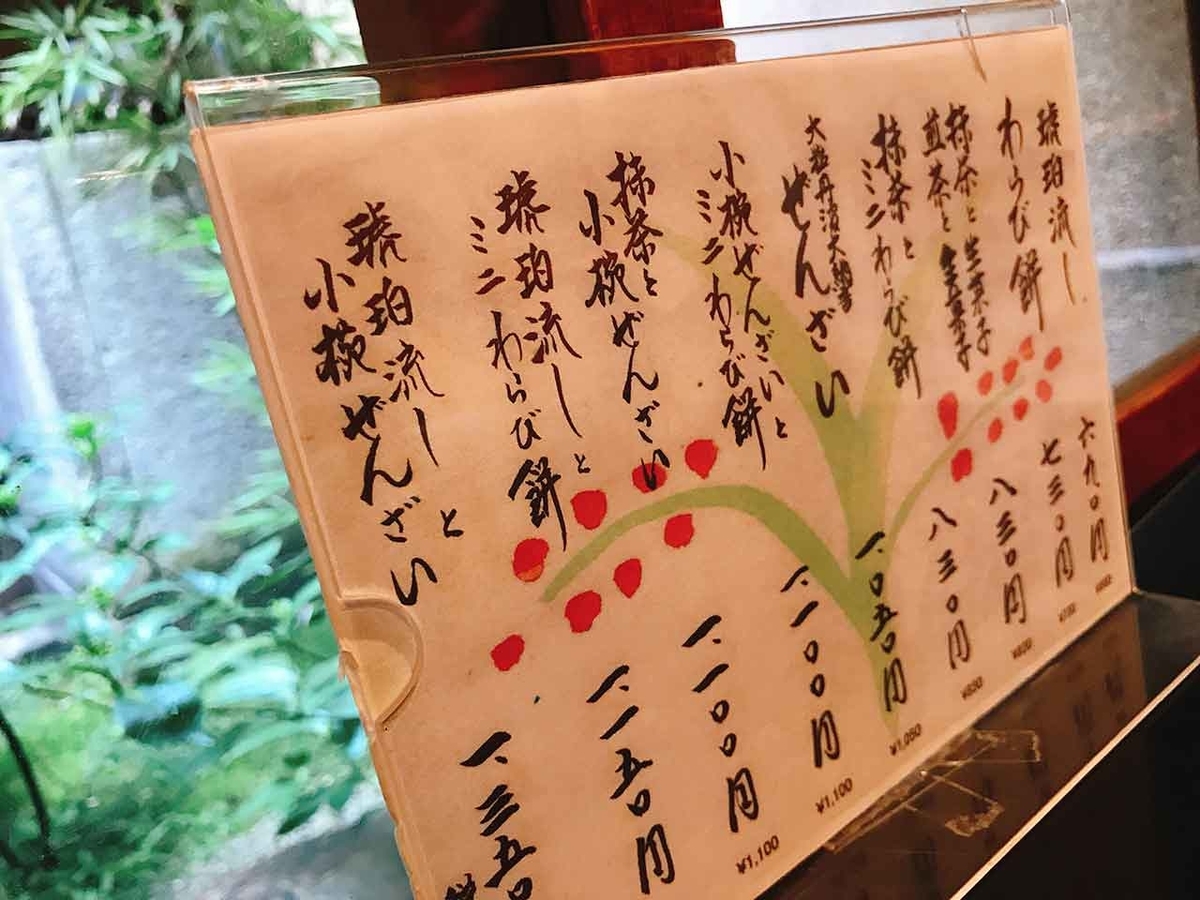 琥珀流し 六九〇円
わらび餅 七三〇円
抹茶と生菓子
煎茶と生菓子
八三〇円
¥830
抹茶と
ミニわらび餅
八三〇円
¥830
大粒丹波大納言
ぜんざい
一、〇五〇円
¥1,050
小椀ぜんざいと
ミニわらび餅
一、一〇〇円
¥1,100
抹茶と
小椀ぜんざい
一、一〇〇円
¥1,100
琥珀流しと
ミニわらび餅
一、一五〇円
琥珀流しと
小椀ぜんざい
一、三五〇